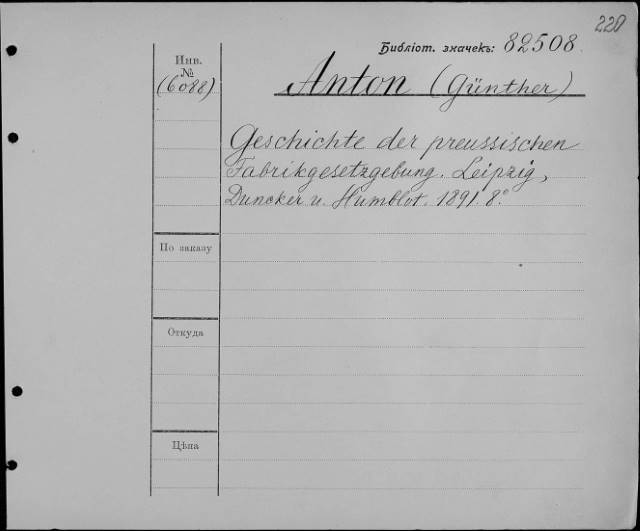 220
Библіот. значекъ: 82508.
Инв.
№
(6088)
Anton (Günther)
Geschichte der preussischen
Fabrikgesetzgebung. Leipzig,
Duncker u. Humblot. 1891. 8°
По заказу
Откуда
Цѣна